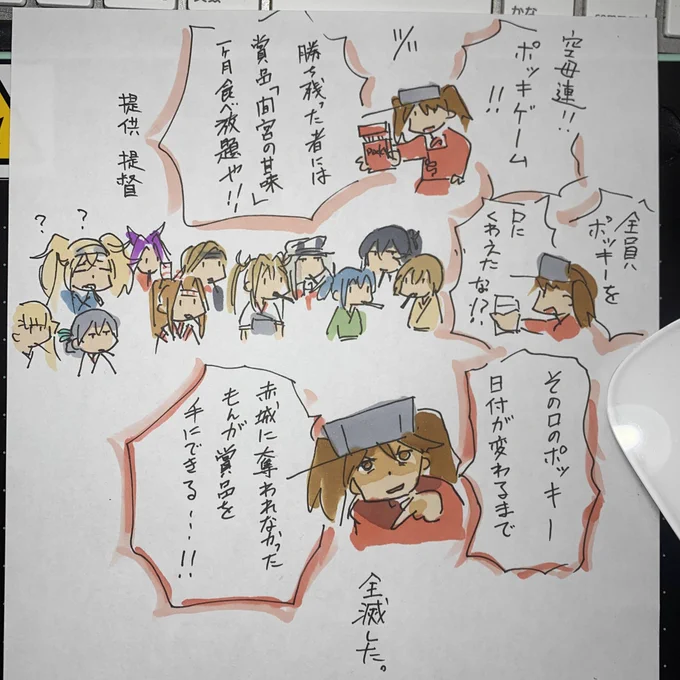 空母連!!
ポッキゲーム
!!
勝ち残った者には
賞品「間宮の甘味」
一ヶ月食べ放題や!!
提供 提督
全員、
ポッキーを
口に
くわえたな!?
? ?
その口のポッキー
日付が変わるまで
赤城に奪われなかった
もんが賞品を
手にできる…!!
全滅した。
かな